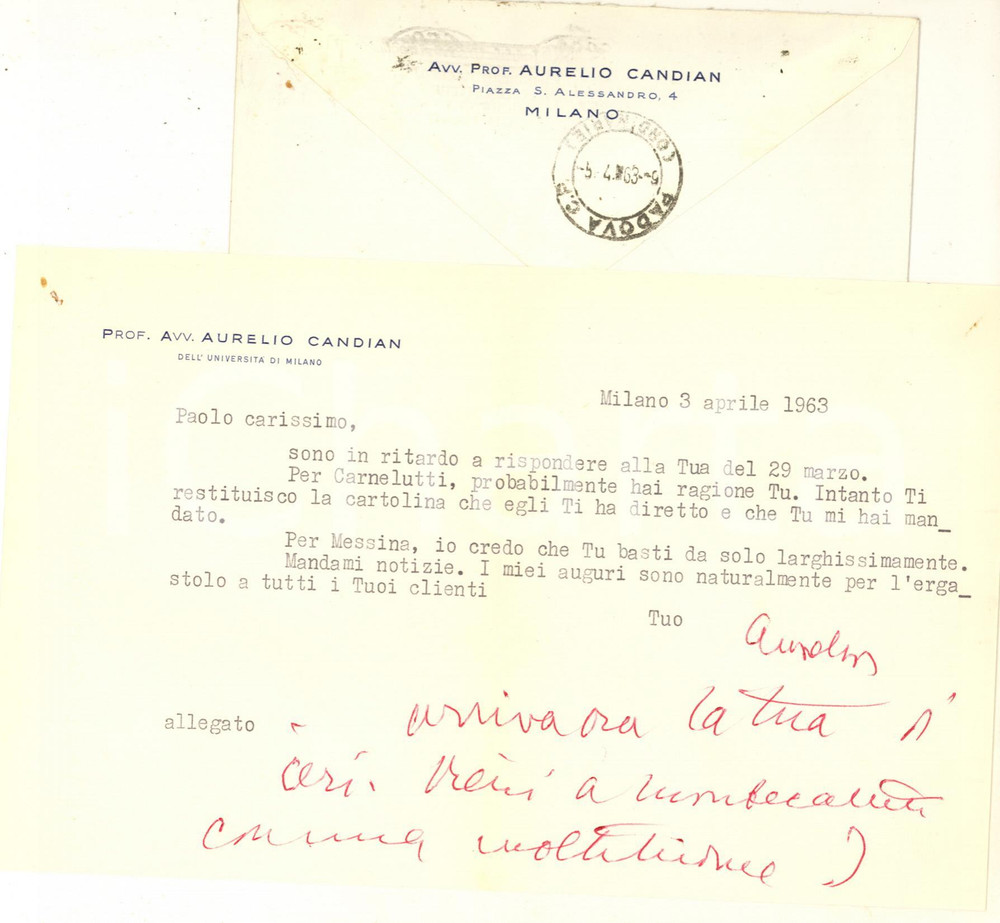 AVV. PROF. AURELIO CANDIAN
PIAZZA S. ALESSANDRO, 4
MILANO
(ORDINARIE)
-5. 4. 63--9
PADOVA C.P.
PROF. AVV. AURELIO CANDIAN
DELL' UNIVERSITÀ DI MILANO
Milano 3 aprile 1963
Paolo carissimo,
sono in ritardo a rispondere alla Tua del 29 marzo.
Per Carnelutti, probabilmente hai ragione Tu. Intanto Ti
restituisco la cartolina che egli Ti ha diretto e che Tu mi hai man_
dato.
Per Messina, io credo che Tu basti da solo larghissimamente.
Mandami notizie. I miei auguri sono naturalmente per l'erga_
stolo a tutti i Tuoi clienti
Tuo
Aurelio
allegato
arriva ora la tua d'
ieri. Vieni a Montecatini
con una